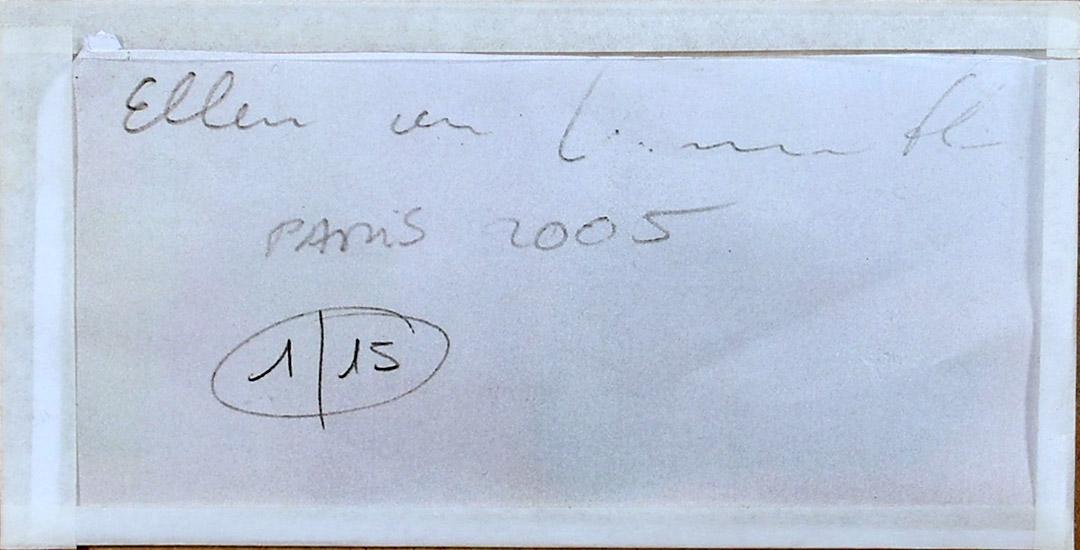 Ellen von
PARIS 2005
1|15